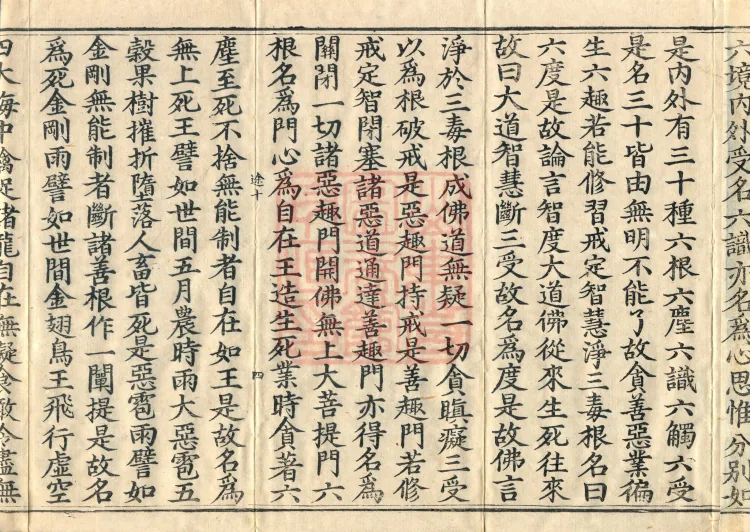 六境内外受名六識亦名爲心思惟分別如
是内外有三十種六根六塵六識六觸六受
是名三十皆由無明不能了故貪善惡業徧
生六趣若能修習戒定智慧淨三毒根名曰
六度是故論言智度大道佛從來生死往來
故曰大道智慧斷三受故名爲度是故佛言
淨於三毒根成佛道無疑一切貪瞋癡三受
以爲根破戒是惡趣門持戒是善趣門若修
戒定智閉塞諸惡道通達善趣門亦得名爲
關閉一切諸惡趣門開佛無上大菩提門六
根名爲門心爲自在王造生死業時貪著六
途十 四
塵至死不捨無能制者自在如王是故名爲
無上死王譬如世間五月農時雨大惡雹五
穀果樹摧折墮落人畜皆死是惡雹雨譬如
金剛無能制者斷諸善根作一闡提是故名
爲死金剛雨譬如世間金翅鳥王飛行虛空
四大海中擒捉諸龍自在無疑食噉令盡無